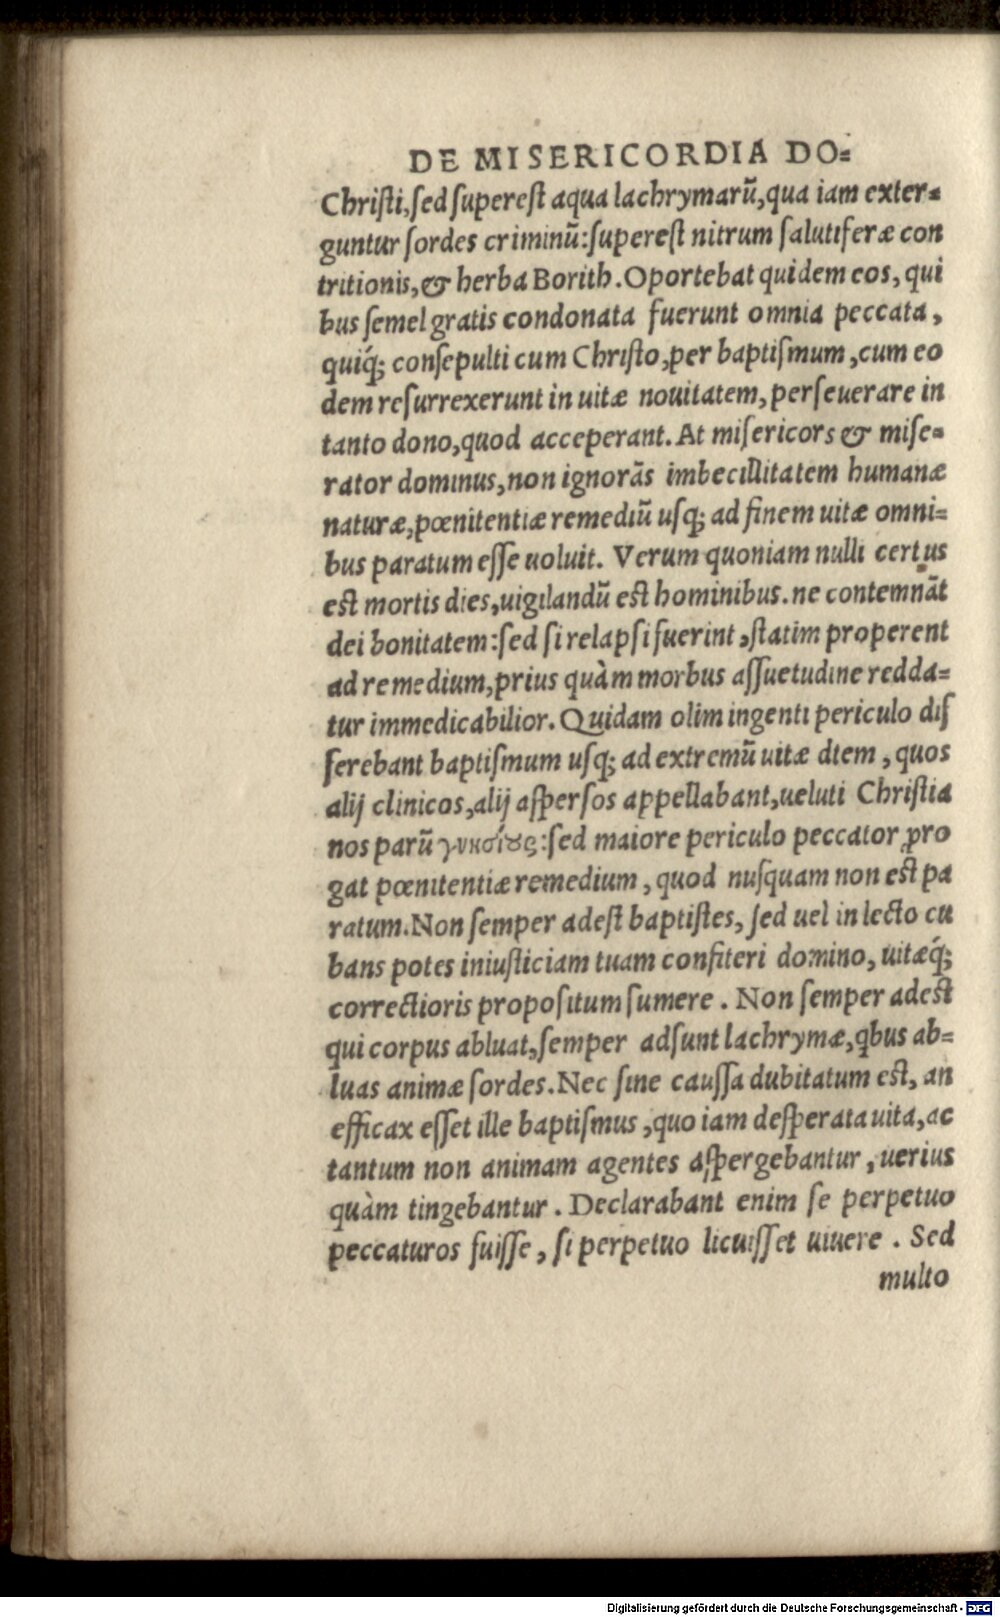 DE MISERICORDIA DO=
Chriſti,ſed ſupereſt aqua lachrymarũ,qua iam exter=
guntur ſordes criminũ:ſupereſt nitrum ſalutiferæ con
tritionis,& herba Borith. Oportebat quidem eos, qui
bus ſemel gratis condonata fuerunt omnia peccata,
quiq́; conſepulti cum Chriſto,per baptiſmum,cum eo
dem reſurrexerunt in uitæ nouitatem, perſeuerare in
tanto dono,quod acceperant. At miſericors & miſe=
rator dominus,non ignorãs imbecillitatem humanæ
naturæ,pœnitentiæ remediũ uſq; ad finem uitæ omni=
bus paratum eſſe uoluit. Verum quoniam nulli certus
eſt mortis dies,uigilandũ eſt hominibus.ne contemnãt
dei bonitatem:ſed ſi relapſi fuerint,ſtatim properent
ad remedium,prius quàm morbus aſſuetudine redda=
tur immedicabilior. Quidam olim ingenti periculo diſ
ferebant baptiſmum uſq; ad extremũ uitæ diem, quos
alij clinicos,alij aſperſos appellabant,ueluti Chriſtia
nos parũ γνησίȣς:ſed maiore periculo peccator ꝓro
gat pœnitentiæ remedium, quod nuſquam non eſt pa
ratum. Non ſemper adeſt baptiſtes, ſed uel in lecto cu
bans potes iniuſticiam tuam confiteri domino, uitæq́;
correctioris propoſitum ſumere. Non ſemper adeſt
qui corpus abluat,ſemper adſunt lachrymæ,qbus ab=
luas animæ ſordes. Nec ſine cauſſa dubitatum eſt, an
efficax eſſet ille baptiſmus,quo iam deſperata uita,ac
tantum non animam agentes aſpergebantur,uerius
quàm tingebantur. Declarabant enim ſe perpetuo
peccaturos fuiſſe, ſi perpetuo licuiſſet uiuere. Sed
multo
Digitalisierung gefördert durch die Deutsche Forschungsgemeinschaft - DFG